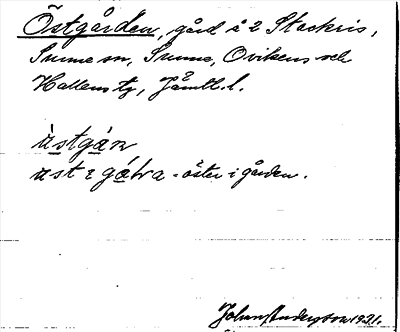 Östgården, gård å 2 Stockris,
Sunne sn, Sunne, Ovikens och
Hallens tg, Jämtl. l.
östgán
öst i gátra - öster i gården.
Johan Anderson 1921.